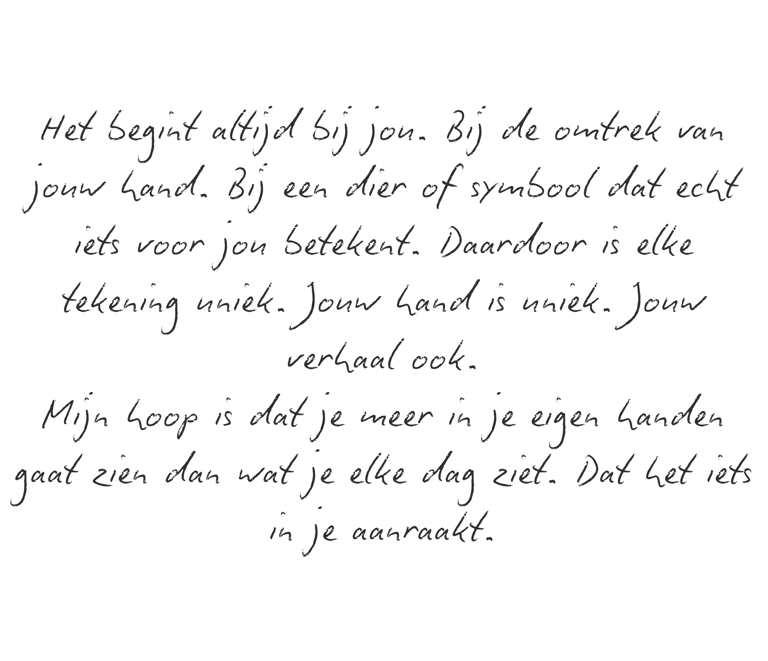 Het begint altijd bij jou. Bij de omtrek van
jouw hand. Bij een dier of symbool dat echt
iets voor jou betekent. Daardoor is elke
tekening uniek. Jouw hand is uniek. Jouw
verhaal ook.
Mijn hoop is dat je meer in je eigen handen
gaat zien dan wat je elke dag ziet. Dat het iets
in je aanraakt.